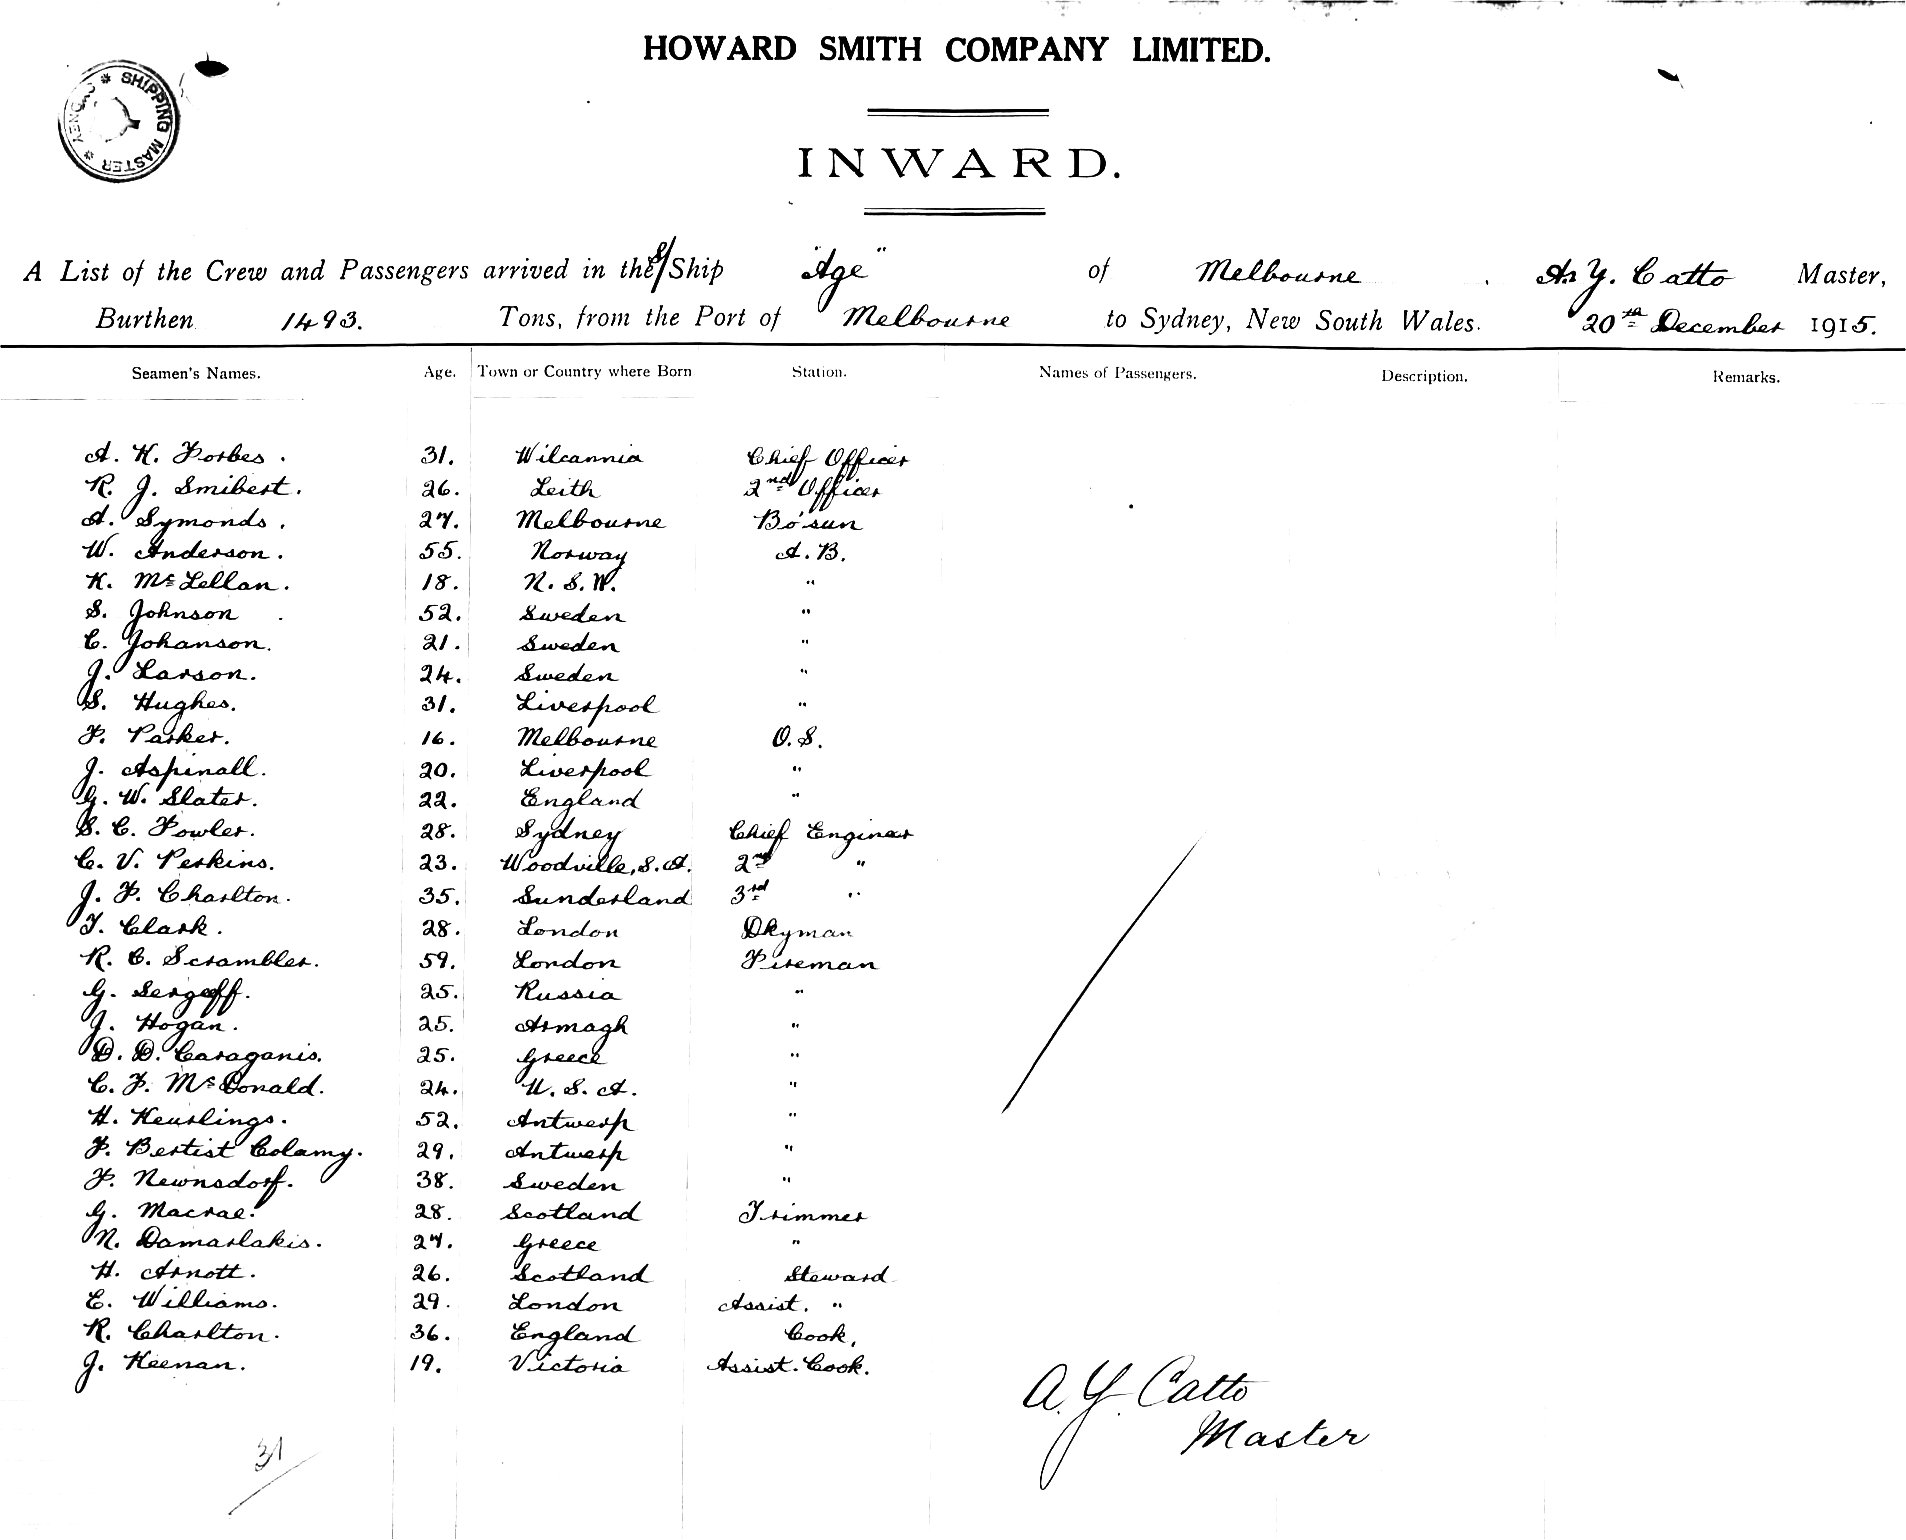 HOWARD SMITH COMPANY LIMITED.
* SHIPPING MASTER * SYDNEY
INWARD.
A List of the Crew and Passengers arrived in the S/Ship "Age" of Melbourne. A. Y. Catto Master,
Burthen 1493. Tons, from the Port of Melbourne to Sydney, New South Wales. 20th December 1915.
Seamen's Names. Age. Town or Country where Born Station. Names of Passengers. Description. Remarks.
A. K. Forbes. 31. Wilcannia Chief Officer
R. J. Smibert. 26. Leith 2nd Officer
A. Symonds. 27. Melbourne Bo'sun
W. Anderson. 55. Norway A.B.
K. McLellan. 18. N.S.W. "
S. Johnson. 52. Sweden "
C. Johanson. 21. Sweden "
J. Larson. 24. Sweden "
S. Hughes. 31. Liverpool "
F. Parker. 16. Melbourne O.S.
J. Aspinall. 20. Liverpool "
G. W. Slater. 22. England "
S. C. Fowler. 28. Sydney Chief Engineer
C. V. Perkins. 23. Woodville, S.A. 2nd "
J. F. Charlton. 35. Sunderland 3rd "
T. Clark. 28. London Dkyman
R. C. Scrambler. 59. London Fireman
G. Sergeff. 25. Russia "
J. Hogan. 25. Armagh "
D. D. Caraganis. 25. Greece "
C. F. McDonald. 24. U.S.A. "
H. Keurlings. 52. Antwerp "
F. Bertist Colamy. 29. Antwerp "
F. Newnsdorf. 38. Sweden "
G. Macrae. 28. Scotland Trimmer
N. Damarlakis. 27. Greece "
H. Arnott. 26. Scotland Steward
E. Williams. 29. London Assist. "
R. Charlton. 36. England Cook,
J. Keenan. 19. Victoria Assist. Cook.
A. Y. Catto
Master
31